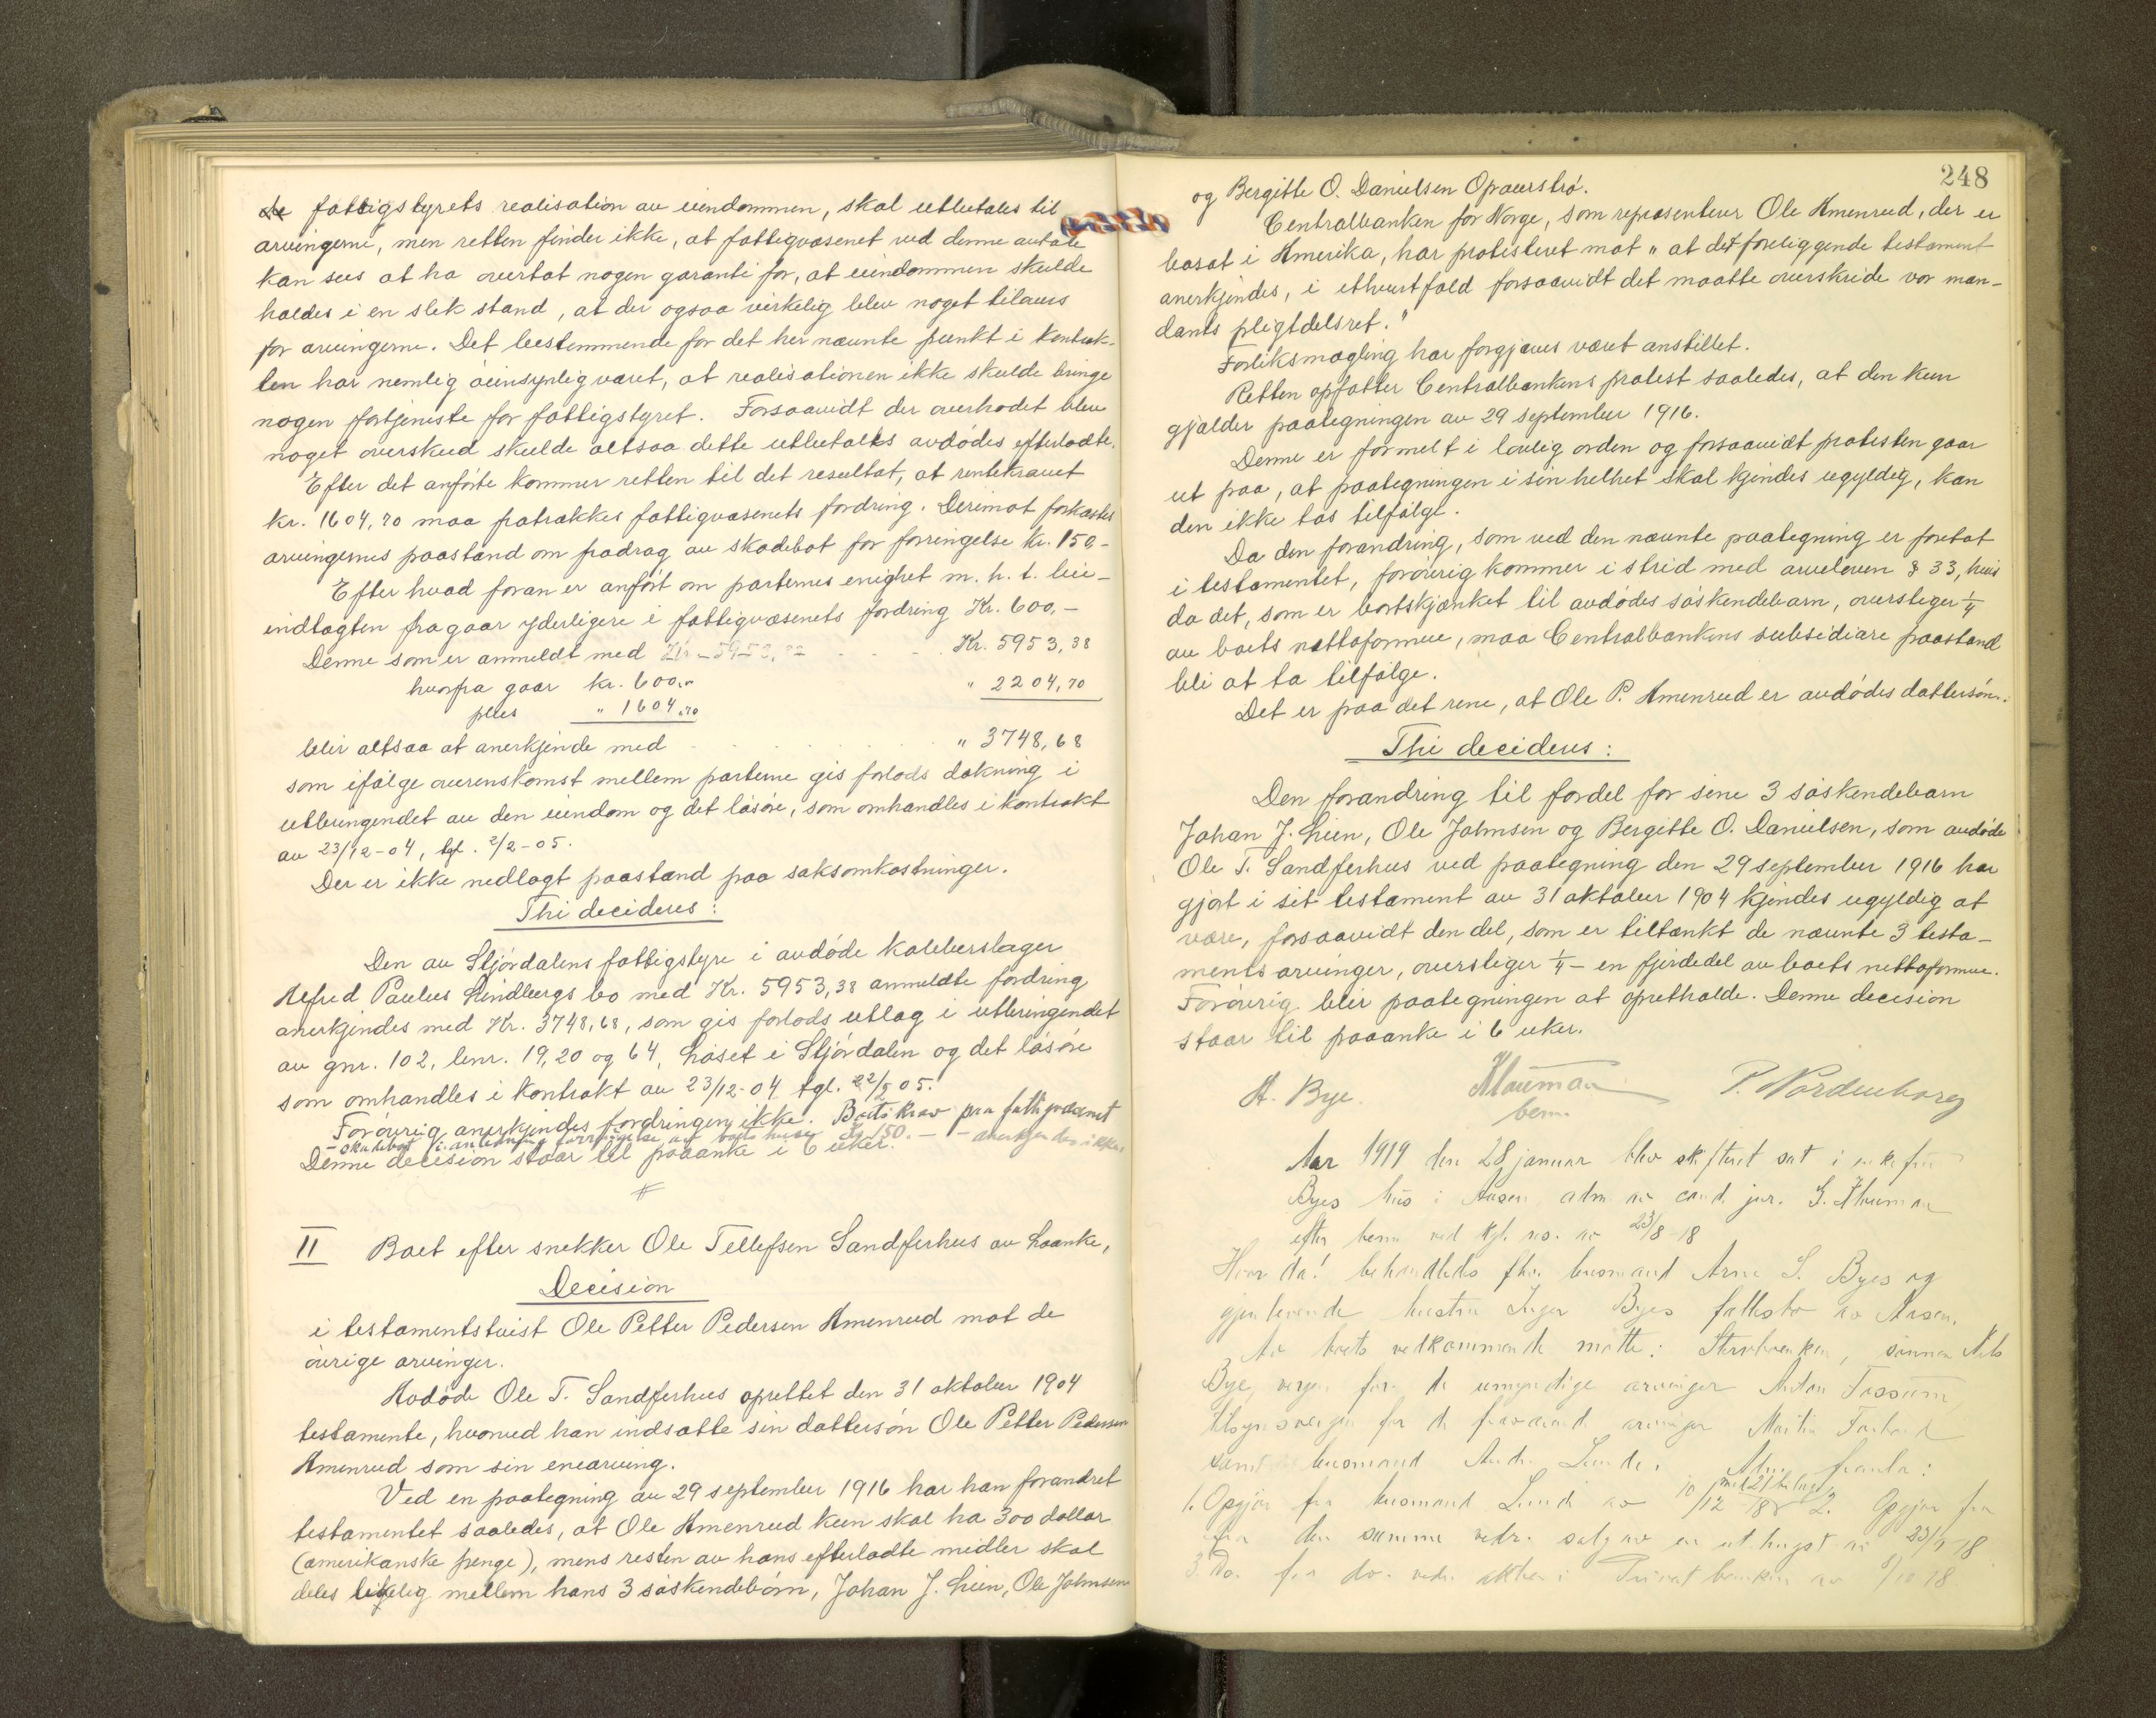 fattigstyrets realisation av eiendommen, skal utbetales til
arvingerne, men retten finder ikke, at fattigvæsenet ved denne avtale
kan sees at ha overtat nogen garanti for, at eiendommen skulde
holdes i en slik stand, at der ogsaa virkelig blev noget tilovers
for arvingerne. Det bestemmende for det her nævnte punkt i kontrak-
ten har nemlig øiensynlig været, at realisationen ikke skulde bringe
nogen fortjeneste for fattigstyret. Forsaavidt der overhodet blev
noget overskud skulde altsaa dette utbetales avdødes efterladte.
Efter det anførte kommer retten til det resultat, at rentekravet
kr. 1604,70 maa fratrækkes fattigvæsenets fordring. Derimot forkastes
arvingernes paastand om fradrag av skadebot for forringelse kr. 150,-
Efter hvad foran er anført om parternes enighet m. h. t. leie-
indtægten fragaar yderligere i fattigvæsenets fordring Kr. 600,-
Denne som er anmeldt med Kr. 5953,38
hvorfra gaar kr. 600,- " 2204,70
plus " 1604,70
blir altsaa at anerkjende med " 3748,68
som ifølge overenskomst mellem parterne gis forlods dækning i
utbringendet av den eiendom og det løsøre, som omhandles i kontrakt
av 23/12-04, tgl. 2/2-05.
Der er ikke nedlagt paastand paa saksomkostninger.
Thi decideres:
Den av Stjørdalens fattigstyre i avdøde kobberslager
Alfred Paulus Lindbergs bo med Kr. 5953,38 anmeldte fordring
anerkjendes med Kr. 3748,68, som gis forlods utlæg i utbringendet
av gnr. 102, bnr. 19, 20 og 64, Løset i Stjørdalen og det løsøre
som omhandles i kontrakt av 23/12-04 tgl. 05.
Forøvrig anerkjendes fordringen ikke. Boets krav paa fattigvæsenet
- skadebot i anledning forringelse av boets huse Kr. 150.- - anerkjendes ikke.
Denne decision staar til paaanke i 6 uker.
II Boet efter snekker Ole Tellefsen Sandferhus av Laanke,
Decision
i testamentstvist Ole Petter Pedersen Amenrud mot de
øvrige arvinger.
Avdøde Ole T. Sandferhus oprettet den 31 oktober 1904
testamente, hvorved han indsatte sin dattersøn Ole Petter Pedersen
Amenrud som sin enearving.
Ved en paategning av 29 september 1916 har han forandret
testamentet saaledes, at Ole Amenrud kun skal ha 300 dollar
(amerikanske penge), mens resten av hans efterladte midler skal
deles likelig mellem hans 3 søskendebørn, Johan J. Lien, Ole Johnsen
248
og Bergitte O. Danielsen
Centralbanken for Norge, som repræsenterer Ole Amenrud, der er
bosat i Amerika, har protesteret mot "at det foreliggende testament
anerkjendes, i ethvertfald forsaavidt det maatte overskride vor man-
dants pligtdelsret."
Forliksmægling har forgjæves været anstillet.
Retten opfatter Centralbankens protest saaledes, at den kun
gjælder paategningen av 29 september 1916.
Denne er formelt i lovlig orden og forsaavidt protesten gaar
ut paa, at paategningen i sin helhet skal kjendes ugyldig, kan
den ikke tas tilfølge.
Da den forandring, som ved den nævnte paategning er foretat
i testamentet, forøvrig kommer i strid med arveloven § 33, hvis
da det, som er bortskjænket til avdødes søskendebarn, overstiger 1/4
av boets nettoformue, maa Centralbankens subsidiære paastand
bli at ta tilfølge.
Det er paa det rene, at Ole P. Amenrud er avdødes dattersøn.
Thi decideres:
Den forandring til fordel for sine 3 søskendebarn
Johan J. Lien, Ole Johnsen og Bergitte O. Danielsen, som avdøde
Ole T. Sandferhus ved paategning den 29 september 1916 har
gjort i sit testament av 31 oktober 1904 kjendes ugyldig at
være, forsaavidt den del, som er tiltænkt de nævnte 3 testa-
mentsarvinger, overstiger 1/4 - en fjerdedel av boets nettoformue.
Forøvrig blir paategningen at opretholde. Denne decision
staar til paaanke i 6 uker.
A. Bye. P. Nordenborg
bem.
Aar 1919 den 28 januar blev skifteret sat i enkefru
Byes hus i Aasen, adm. av cand. jur.
efter bem. ved kgl. res. av 23/8-18
Hvorda! behandledes lensmand Arne S. Byes og
gjenlevende hustru Inger Byes fællesbo av Aasen.
Av boets vedkommende møtte: Stervboenken, sønnen Nils
Bye, verge for de umyndige arvinger Anton Fossum,
tilsynsverge for de fraværende arvinger Martin
samt lensmand Lunde. Adm. fremla:
1. Opgjør fra lensmand Lunde av 10/12 18 med 21 bilag 2. Opgjør fra
fra den samme vedr. salg av en ut.hingst av 18
3. Do. fra do. vedr. aktier i Privatbanken av 8/10 18